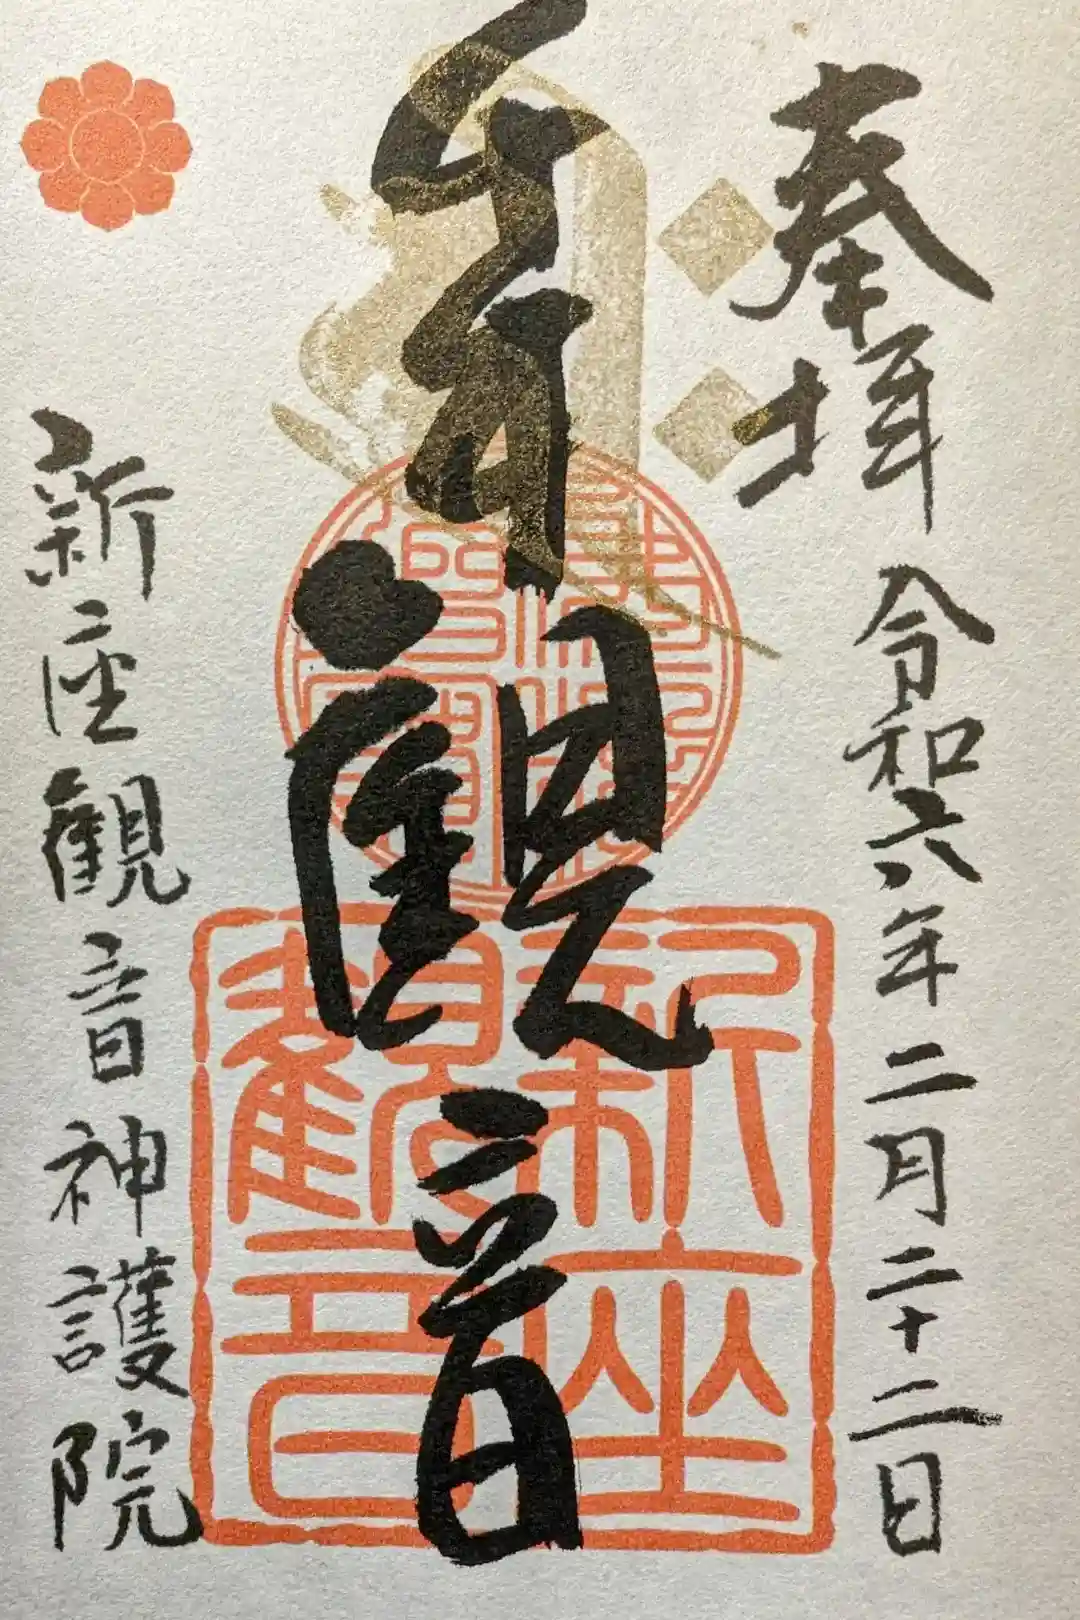 奉拝 令和六年二月二十二日
千手観音
新座観音神護院
新座
觀音